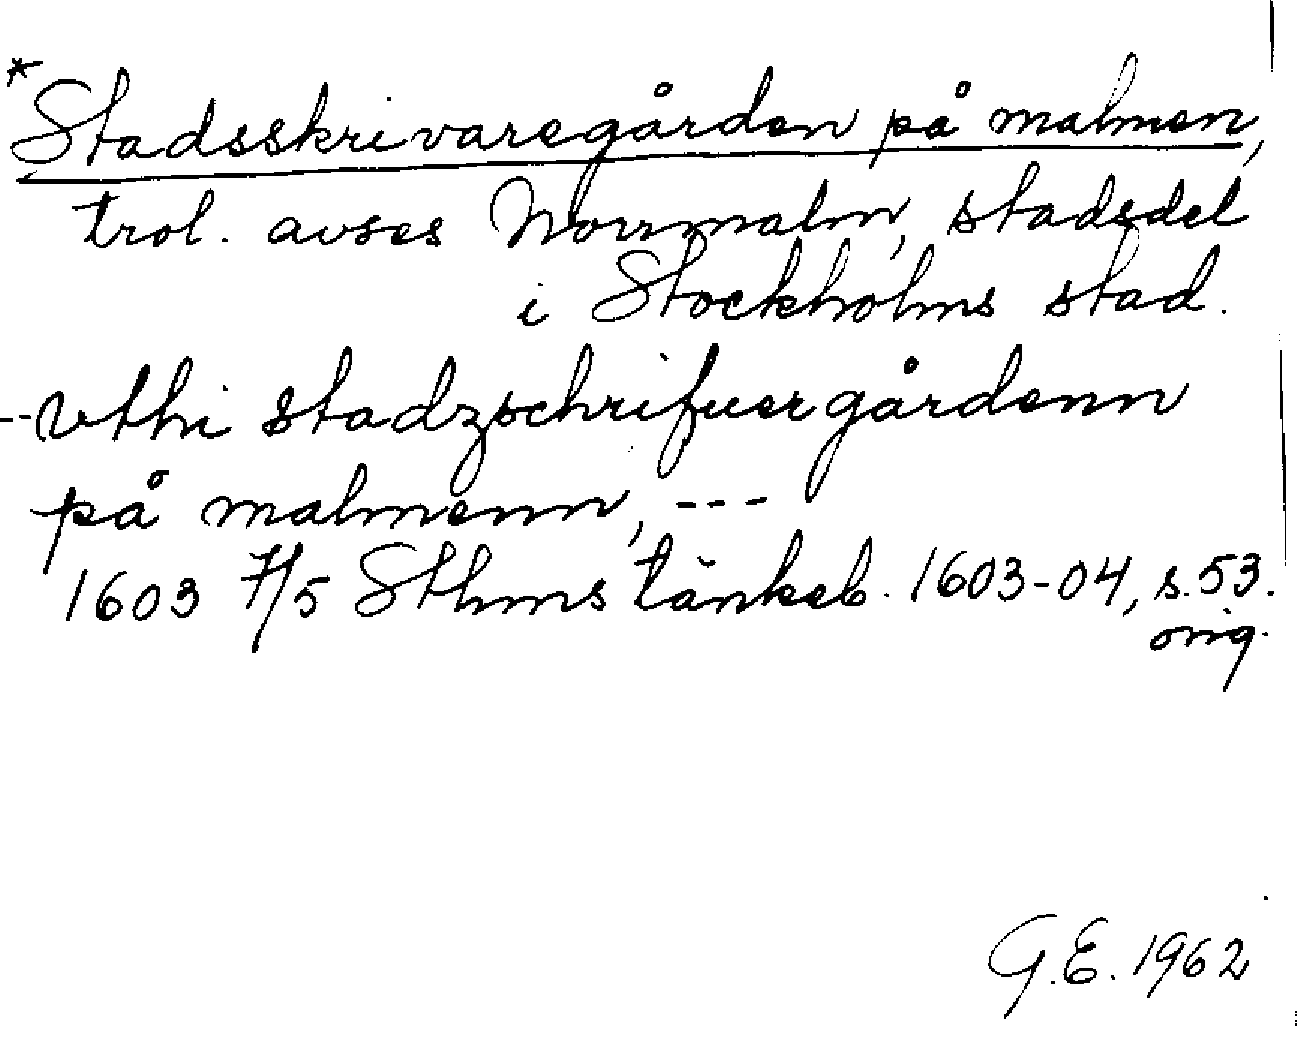 *Stadsskrivaregården på malmen,
trol. avses Norrmalm, stadsdel
i Stockholms stad.
--vthi stadzschrifuergårdenn
på malmenn, ---
1603 7/5 Sthms tänkeb. 1603-04, s. 53.
orig.
G.E. 1962